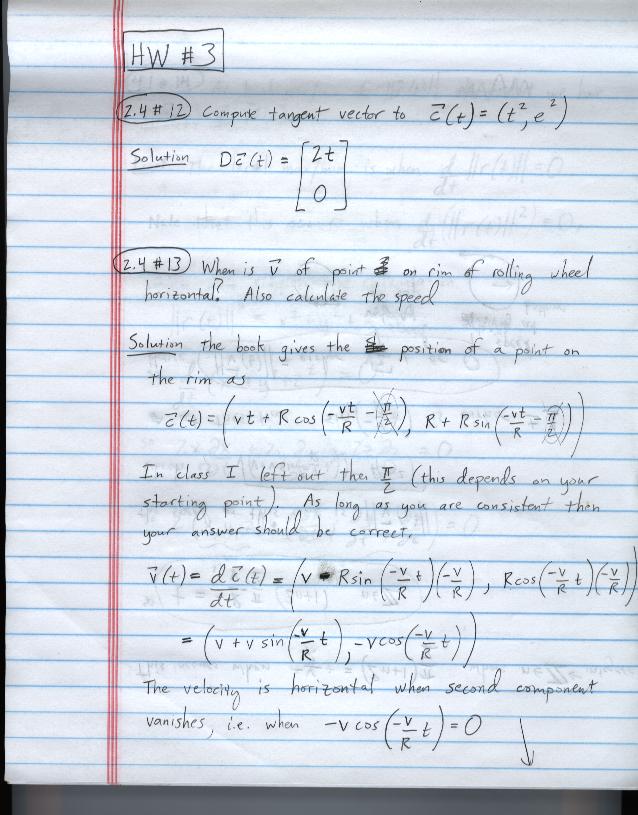 HW #3
2.4 #12 Compute tangent vector to c⃗(t) = (t², e²)
Solution Dc⃗(t) = [2t
0]
2.4 #13 When is v⃗ of point on rim of rolling wheel
horizontal? Also calculate the speed
Solution the book gives the position of a point on
the rim as
c⃗(t) = (vt + R cos(-vt/R - π/2), R + R sin(-vt/R - π/2))
In class I left out the π/2 (this depends on your
starting point). As long as you are consistent then
your answer should be correct.
v⃗(t) = dc⃗(t)/dt = (v - R sin(-v/R t)(-v/R), R cos(-v/R t)(-v/R))
= (v + v sin(-v/R t), -v cos(-v/R t))
The velocity is horizontal when second component
vanishes, i.e. when -v cos(-v/R t) = 0 ↓